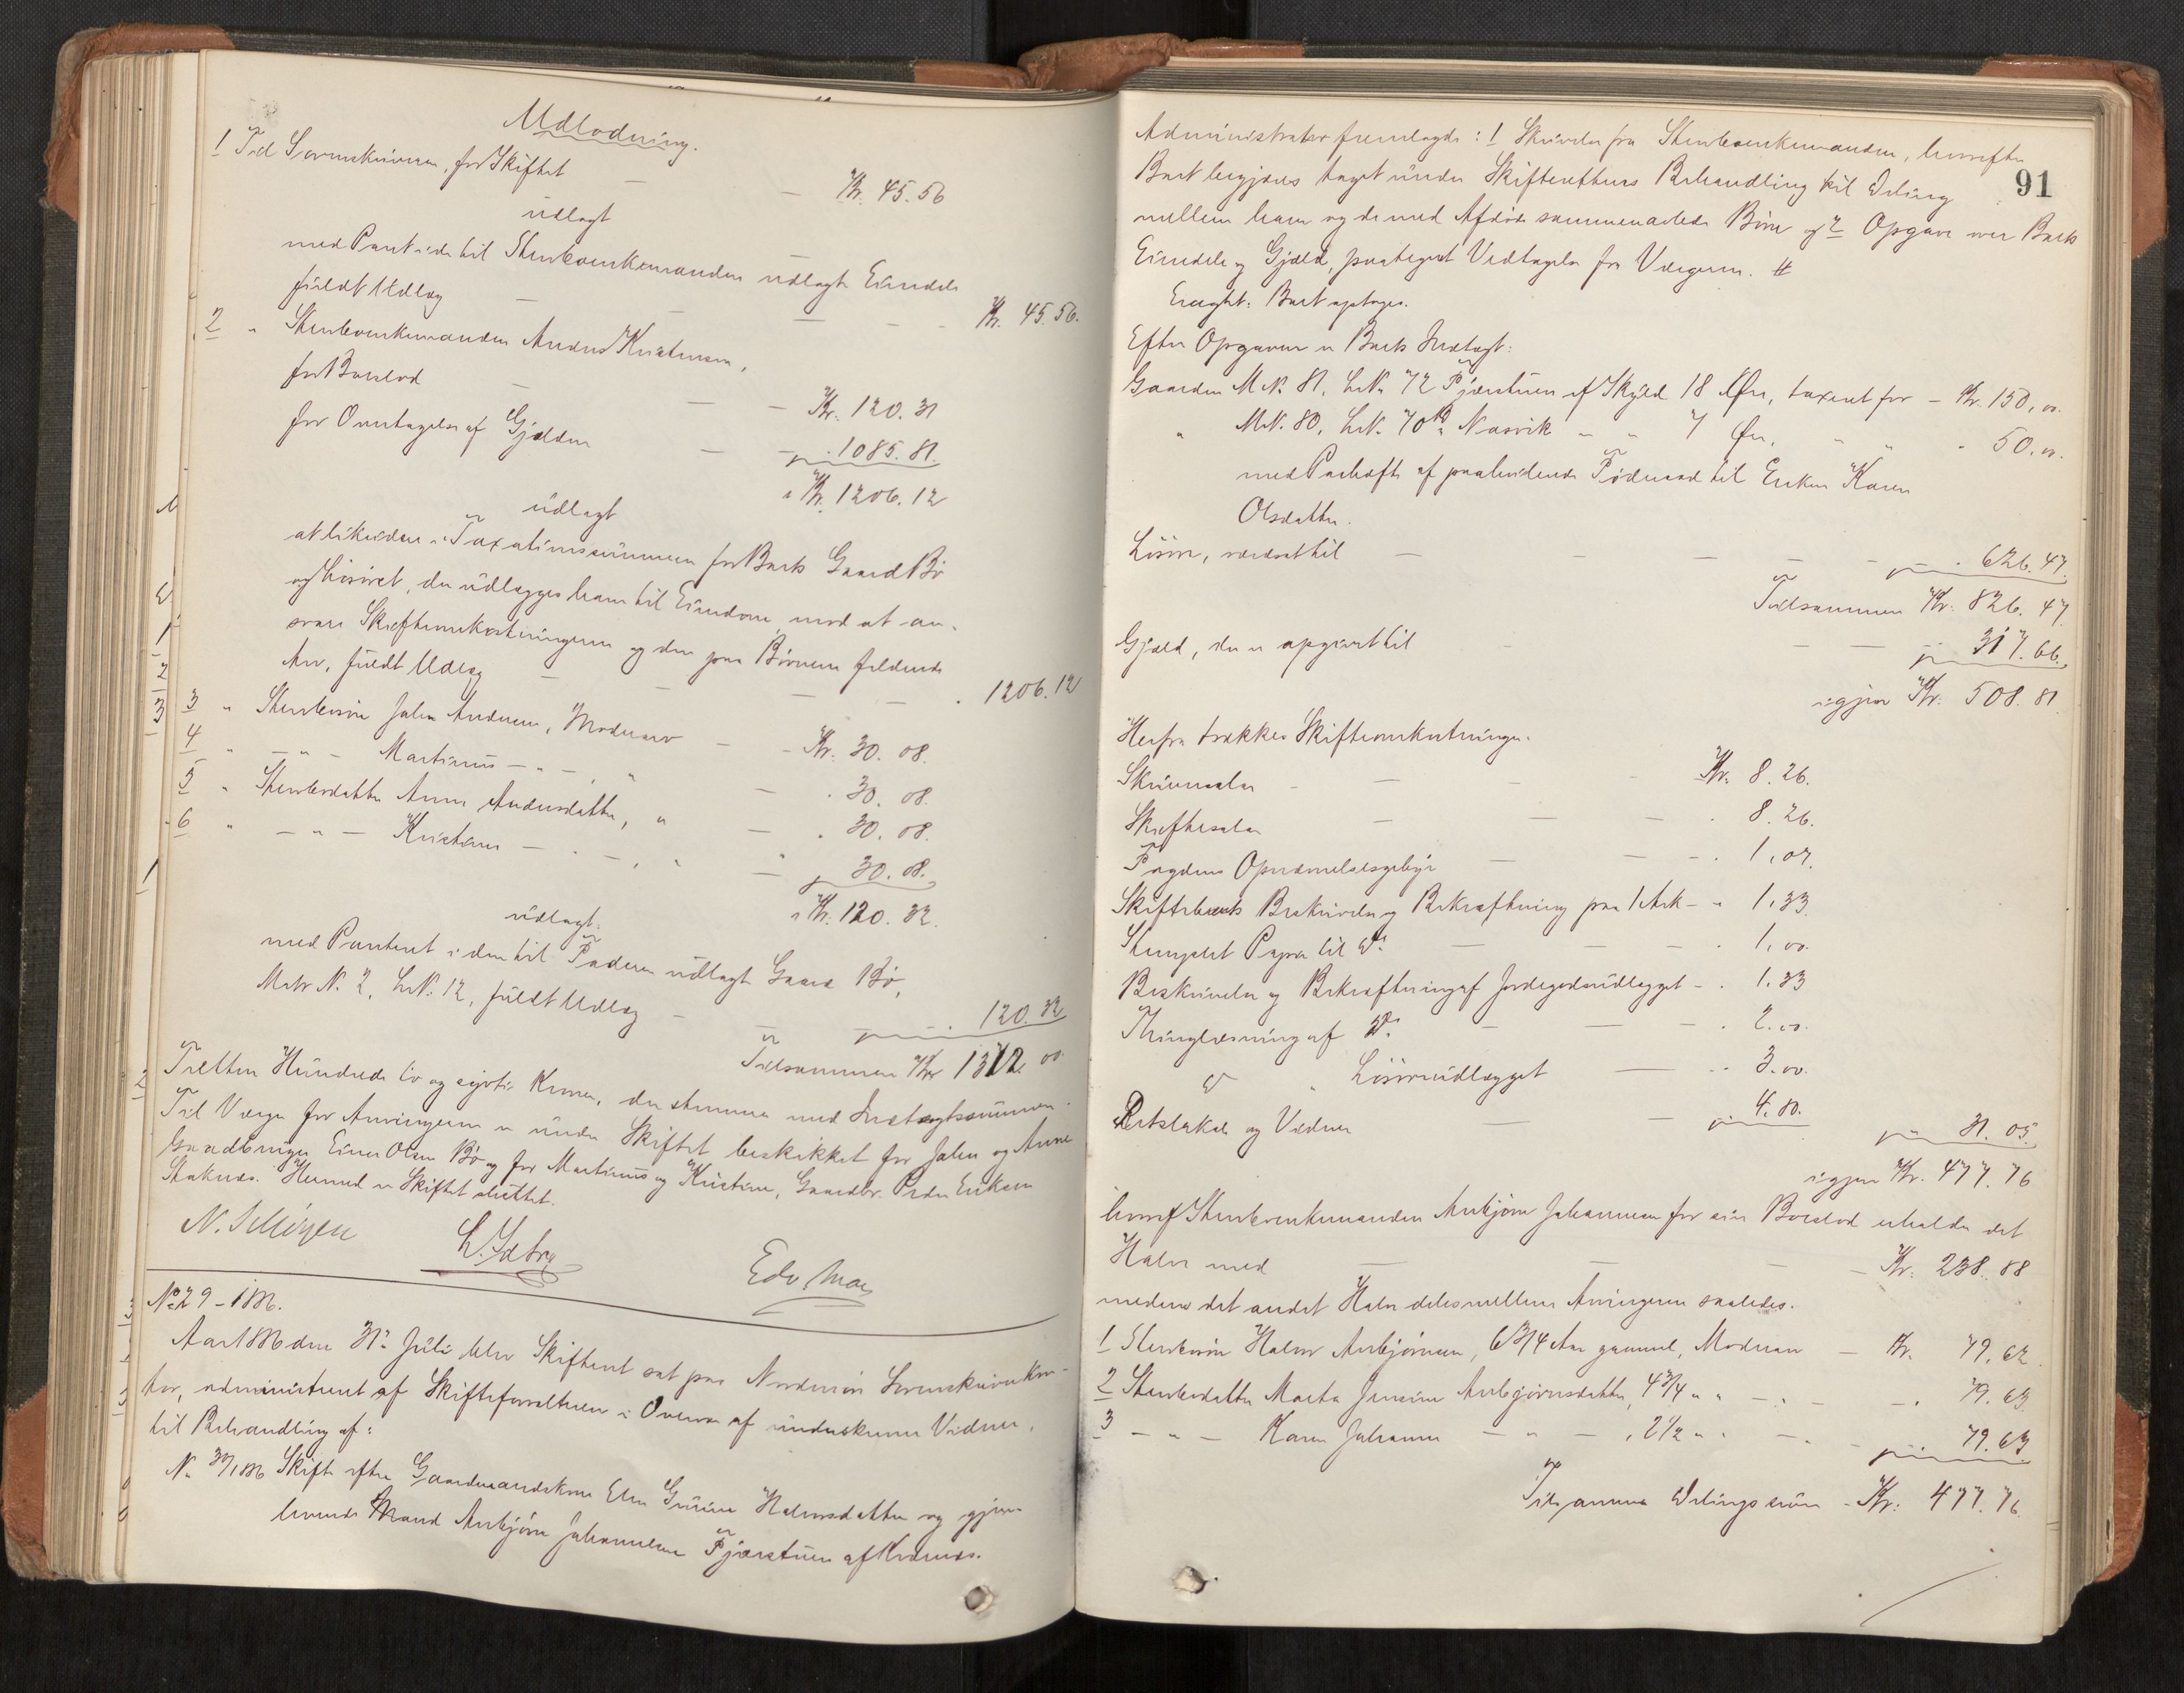 Udlodning.
1 Til Sorenskriveren, for Skiftet — — Kr. 45.56
udlagt
med Pant i de til Sterbøenkemanden udlagte Eiendele
fuldt Udlæg — — — — Kr. 45.56.
2 " Sterbøenkemanden Anders Kristensen,
for Boeslod — — — Kr. 120.31
for Overtagelse af Gjælden — — " 1085.81.
Kr. 1206.12
udlagt
at likvidere i Taxationssummen for Boets Gaard Bø
og Løsøret, der udlægges ham til Eiendom, mod at an-
svare Skifteomkostningerne og den paa Børnene faldende
Arv, fuldt Udlæg — — — " 1206.12
3 " Sterbøsøn Johan Andersen, Modrearv — — Kr. 30.08.
4 " — " — Martinus — " — , " — " 30.08.
5 " Sterbødatter Anne Andersdatter, " — " 30.08.
6 " — " — Kristine — " — , " — " 30.08.
Kr. 120.32.
udlagt
med Panteret i den til Faderen udlagte Gaard Bø,
Matr N. 2, LN. 12, fuldt Udlæg — — — " 120.32
Tilsammen Kr 1372.00
Tretten Hundrede to og syvti Kroner, der stemmer med Indtægtssummen.
Til Værger for Arvingerne er under Skiftet beskikket for Johan og Anne
Gaardbruger Einer Olsen Bø og for Martinus og Kristine, Gaardbr. Peder Eriksen
Staknes. Hermed er Skiftet sluttet.
Edv Moe
N° 29 - 1886.
Aar 1886 den 31te Juli blev Skifteret sat paa Nordmøre Sorenskriverkon-
tor, administreret af Skifteforvalteren i Overvær af underskrevne Vidner,
til Behandling af:
N. 37/1886 Skifte efter Gaardmandskone Elen Gurine Halvorsdatter og gjen-
levende Mand Arnbjørn Johannesen Fjærstuen af Kvernes.
91
Administrator fremlagde: 1 Skrivelse fra Sterbøenkemanden, hvorefter
Boet begjæres taget under Skifterettens Behandling til Deling
mellem ham og de med Afdøde sammenavlede Børn og 2 Opgave over Boets
Eiendele og Gjæld, paategnet Vedtagelse fra Værgerne. #
Eragtet: Boet optages.
Efter Opgaven er Boets Indtægt:
Gaarden M.N. 81, L.N. 72 Fjærstuen af Skyld 18 Øre, taxeret for — Kr. 150.00.
" M.N. 80, L.N. 70b, Nasvik — " 7 Øre, " " " 50.00.
med Paaheft af paahvilende Føderaad til Enken Karen
Olsdatter.
Løsøre, værdsat til — — — — — " 626.47.
Tilsammen Kr. 826.47
Gjæld, der er opgivet til — — — " 317.66.
igjen Kr. 508.81
Herfra trækkes Skifteomkostninger.
Skriversalær — — — Kr. 8.26.
Skiftesalær — — — " 8.26.
Fogdens Opnævnelsesgebyr — — — " 1.07.
Skiftebrevets Beskrivelse og Bekræftning paa 1 Ark — " 1.33.
Stemplet Papir til D° — — — " 1.00.
Beskrivelse og Bekræftning af Jordegodsudlægget — " 1.33
Thinglæsning af D° — — — " 2.00.
D° " Løsøreudlægget — — " 3.00.
Retslokale og Vidner — — " 4.80. " 31.05.
igjen Kr. 477.76
hvoraf Sterbøenkemanden Arnbjørn Johannesen for sin Boeslod erholder det
Halve med — — — — Kr. 238.88
medens det andet Halve deles mellem Arvingerne saaledes.
1 Sterbøsøn Halvor Arnbjørnsen, 6 3/4 Aar gammel, Modrearv — Kr. 79.62.
2 Sterbødatter Marta Jensine Arnbjørnsdatter, 4 3/4 " " — " — " 79.63.
3 — " — Karen Johanna — " — , 2 1/2 " " — " — " 79.63.
Tilsammen Delingssum — Kr. 477.76.